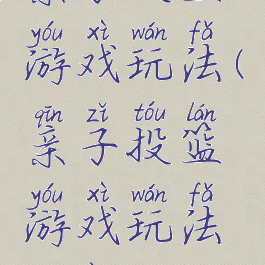 yóu xì wán fǎ
游戏玩法(
qīn zǐ tóu lán
亲子投篮
yóu xì wán fǎ
游戏玩法